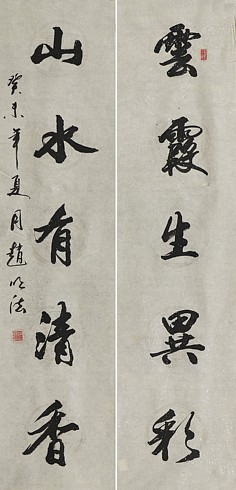 雲霞生異彩
山水有清香
癸未年夏月趙